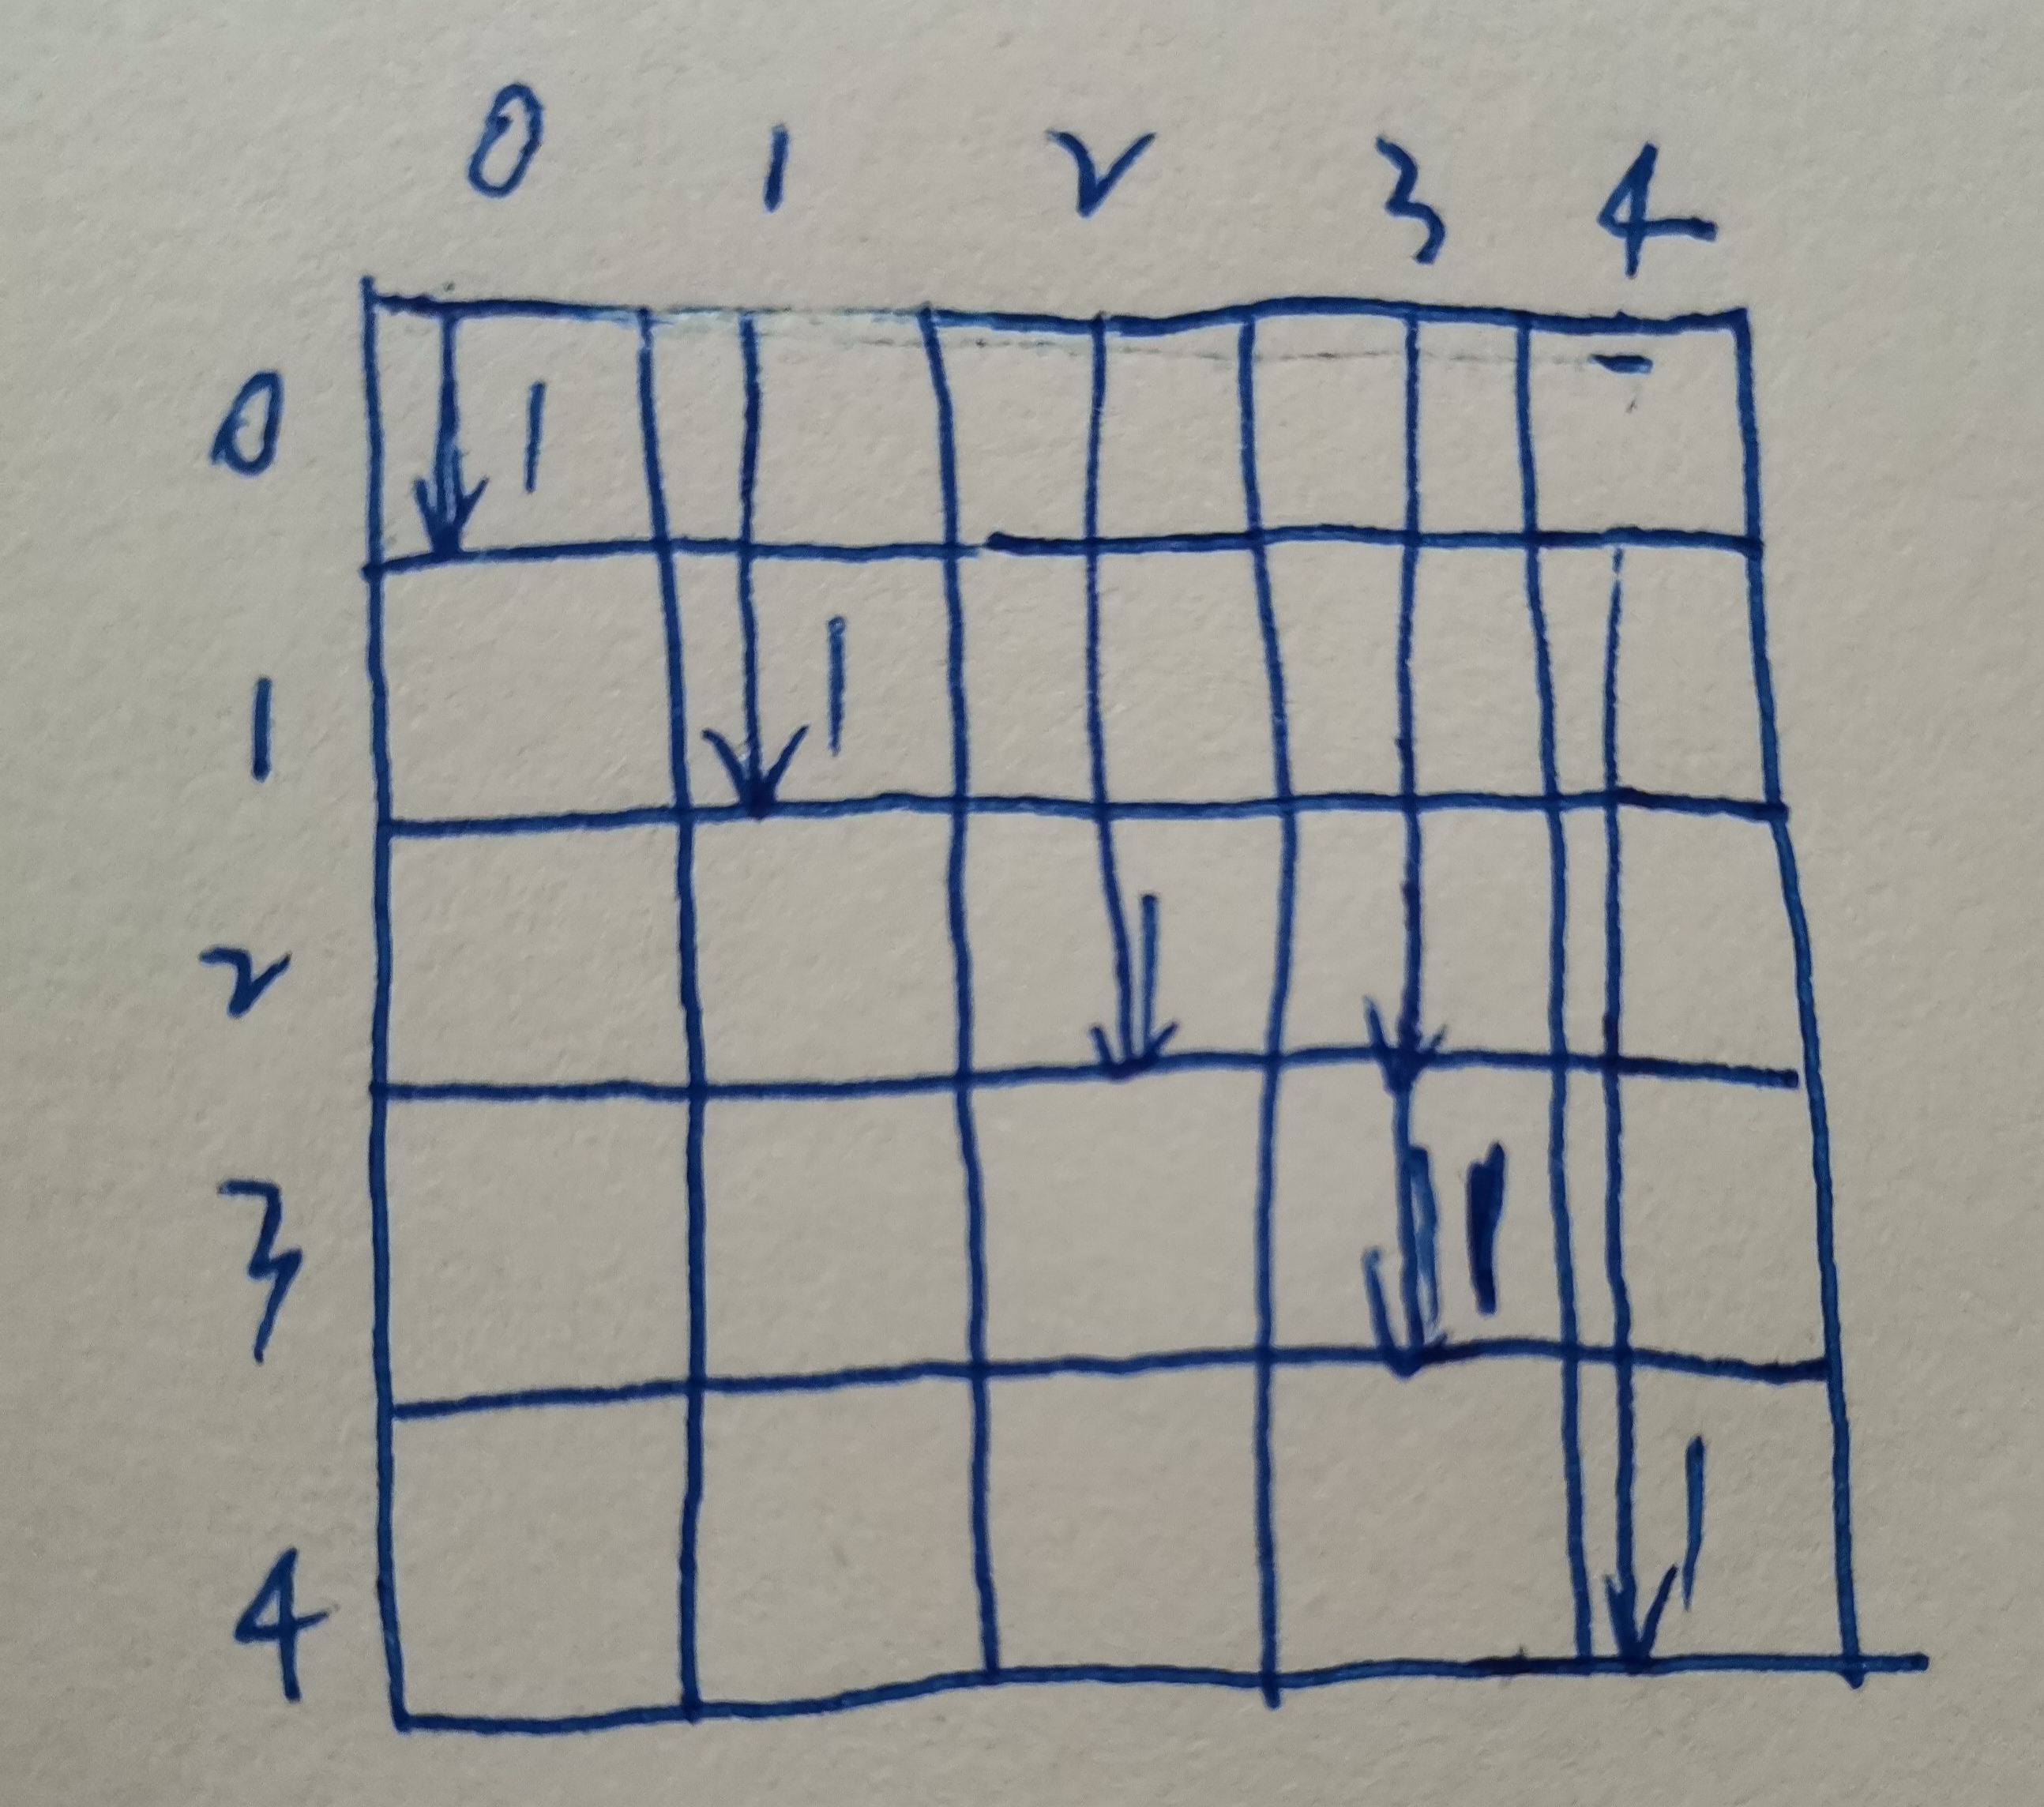 0 1 2 3 4
0 1
1 1
2 1
3 1
4 1